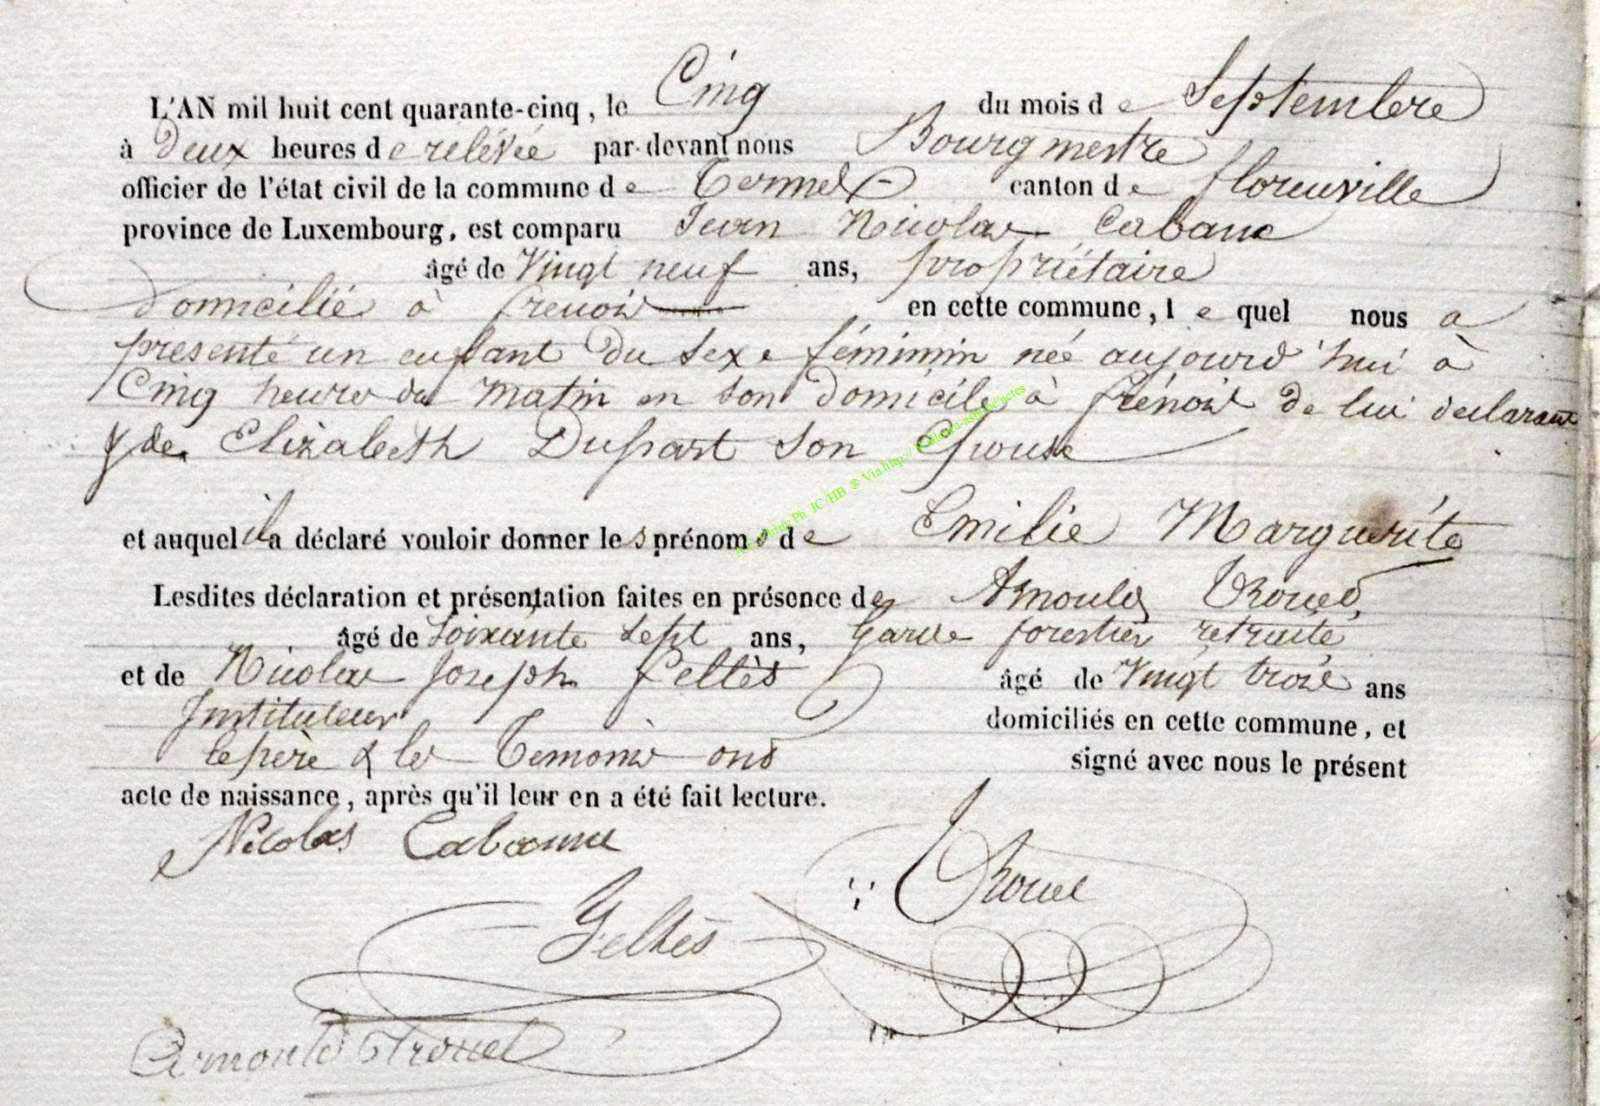 L'AN mil huit cent quarante-cinq, le Cinq du mois de Septembre
à Deux heures de rélévée par-devant nous Bourgmestre
officier de l'état civil de la commune de Termes canton de florenville
province de Luxembourg, est comparu Jean Nicolas Cabane
âgé de Vingt neuf ans, propriétaire
Domicilié à frenois en cette commune, le quel nous a
présenté un enfant du sexe féminin née aujourd'hui à
Cinq heures du Matin en son domicile à frénois de lui déclarant
& de Elizabeth Dupart son Epouse
et auquel il a déclaré vouloir donner les prénoms de Emilie Marguerite
Lesdites déclaration et présentation faites en présence de Arnould
âgé de Soixante sept ans, Garde forestier retraité
et de Nicolas Joseph Feltès âgé de Vingt trois ans
Instituteur domiciliés en cette commune, et
le père & les Temoins ont signé avec nous le présent
acte de naissance, après qu'il leur en a été fait lecture.
Nicolas Cabanne
Feltès